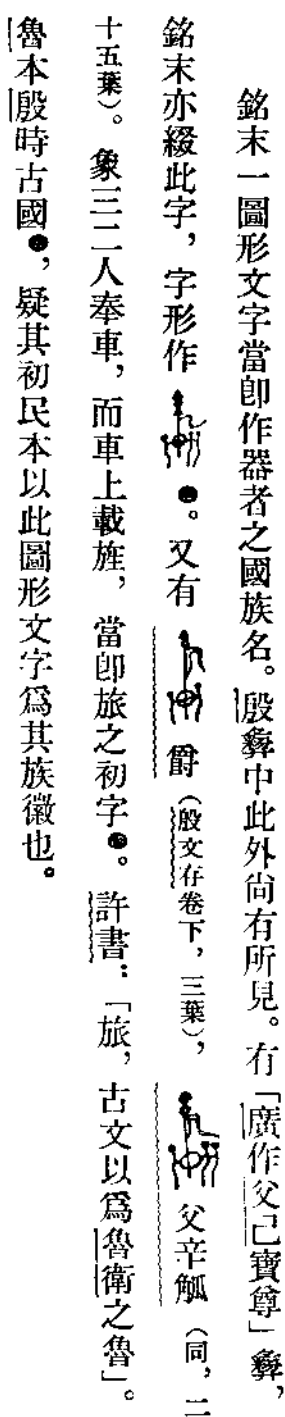 銘末一圖形文字當卽作器者之國族名。殷彝中此外尚有所見。有「廣作父己寶尊」彝，
銘末亦綴此字，字形作 。又有 爵（殷文存卷下，三葉）， 父辛觚（同，二
十五葉）。象三二人奉車，而車上載旌，當卽旅之初字。許書：「旅，古文以爲魯衛之魯」。
魯本殷時古國，疑其初民本以此圖形文字爲其族徽也。